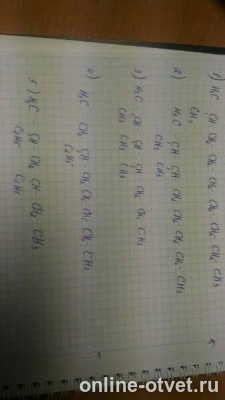 1) H3C CH CH2 - CH2 - CH2 - CH2 CH2 CH3
CH3
2) H3C - CH - CH CH2 CH2 CH2 CH2 - CH3
CH3 CH3
3) H3C CH CH CH - CH2 CH2 CH3
CH3 CH3 CH3
4) H3C CH2 CH CH2 CH2 CH2 - CH2 - CH3
C2H5
5) H3C - CH - CH2 CH - CH2 CH3
C2H5 C2H5
online-otvet.ru